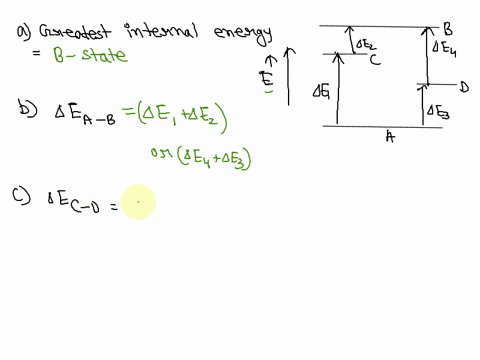 a) Greatest internal energy
= B-state
b) ΔE A-B = (ΔE1 + ΔE2)
or (ΔE4 + ΔE3)
c) ΔE C-D =
E
B
ΔE2
ΔE4
C
ΔE1
D
ΔE3
A